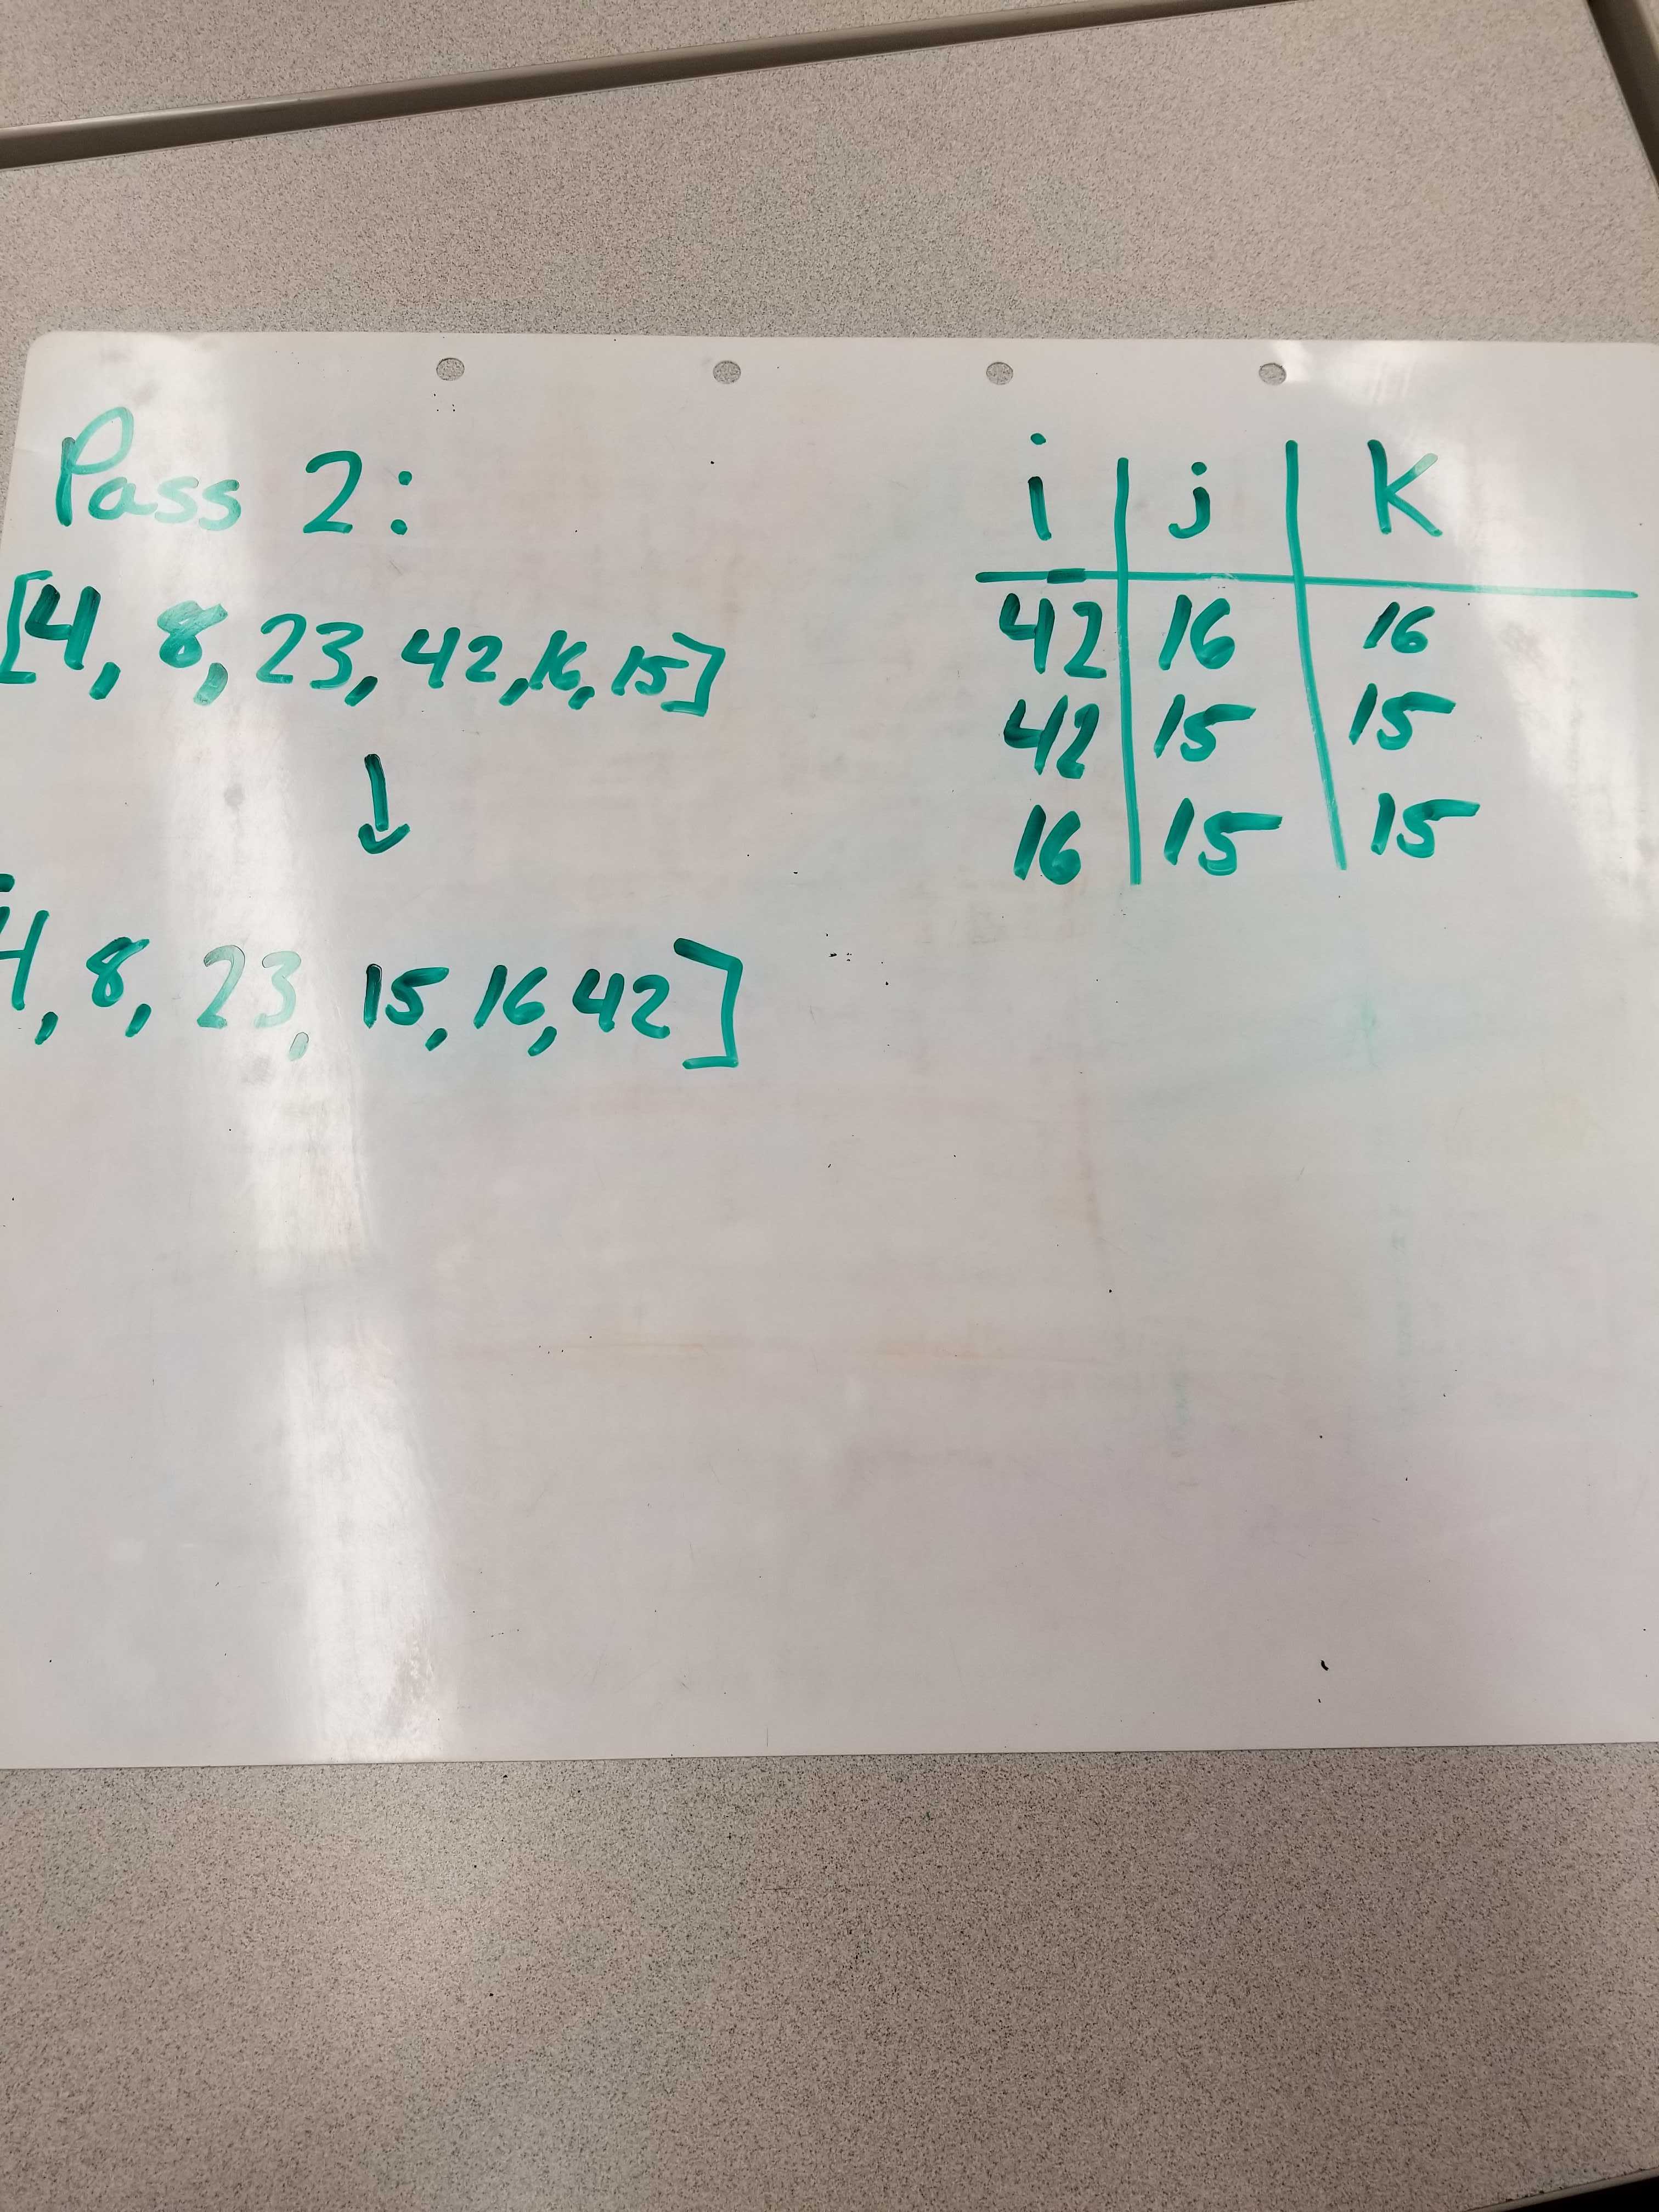 Pass 2:
[4, 8, 23, 42, 16, 15]
↓
4, 8, 23, 15, 16, 42]
i j K
42 16 16
42 15 15
16 15 15